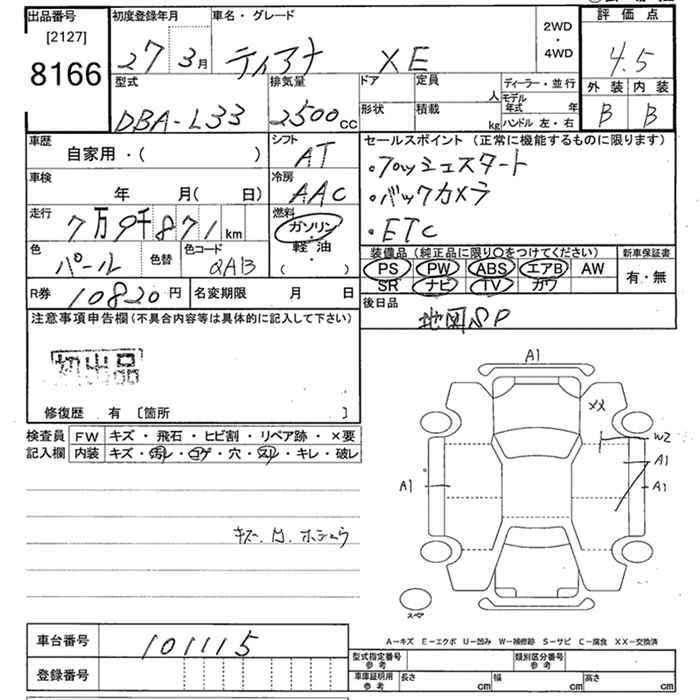 出品番号
[2127]
8166
初度登録年月
27 3月
車名・グレード
ティアナ XE
2WD
・
4WD
評価点
4.5
外装 内装
B B
型式
DBA-L33
排気量
2500cc
ドア
定員
人
形状
積載
kg
ディーラー・並行
モデル年式 年
ハンドル 左・右
車歴
自家用・( )
シフト
AT
セールスポイント (正常に機能するものに限ります)
・プッシュスタート
・バックカメラ
・ETC
車検
年 月( 日)
冷房
AAC
走行
7万9千871km
燃料
ガソリン
軽油
( )
色
パール
色替
色コード
QAB
装備品 (純正品に限り○をつけてください)
PS PW ABS エアB AW
SR ナビ TV カワ
新車保証書
有・無
R券
10820円
名変期限 月 日
後日品
地図SP
注意事項申告欄 (不具合内容等は具体的に記入して下さい)
初出品
修復歴 有 [箇所 ]
検査員
記入欄
FW キズ・飛石・ヒビ割・リペア跡・×要
内装 キズ・汚レ・コゲ・穴・スリ・キレ・破レ
A1
XX
W2
A1
A1
A1
スペア
A－キズ E－エクボ U－凹み W－補修跡 S－サビ C－腐食 XX－交換済
車台番号
101115
登録番号
型式指定番号
参考
類別区分番号
参考
車庫証明用
参考
長さ cm 幅 cm 高さ cm